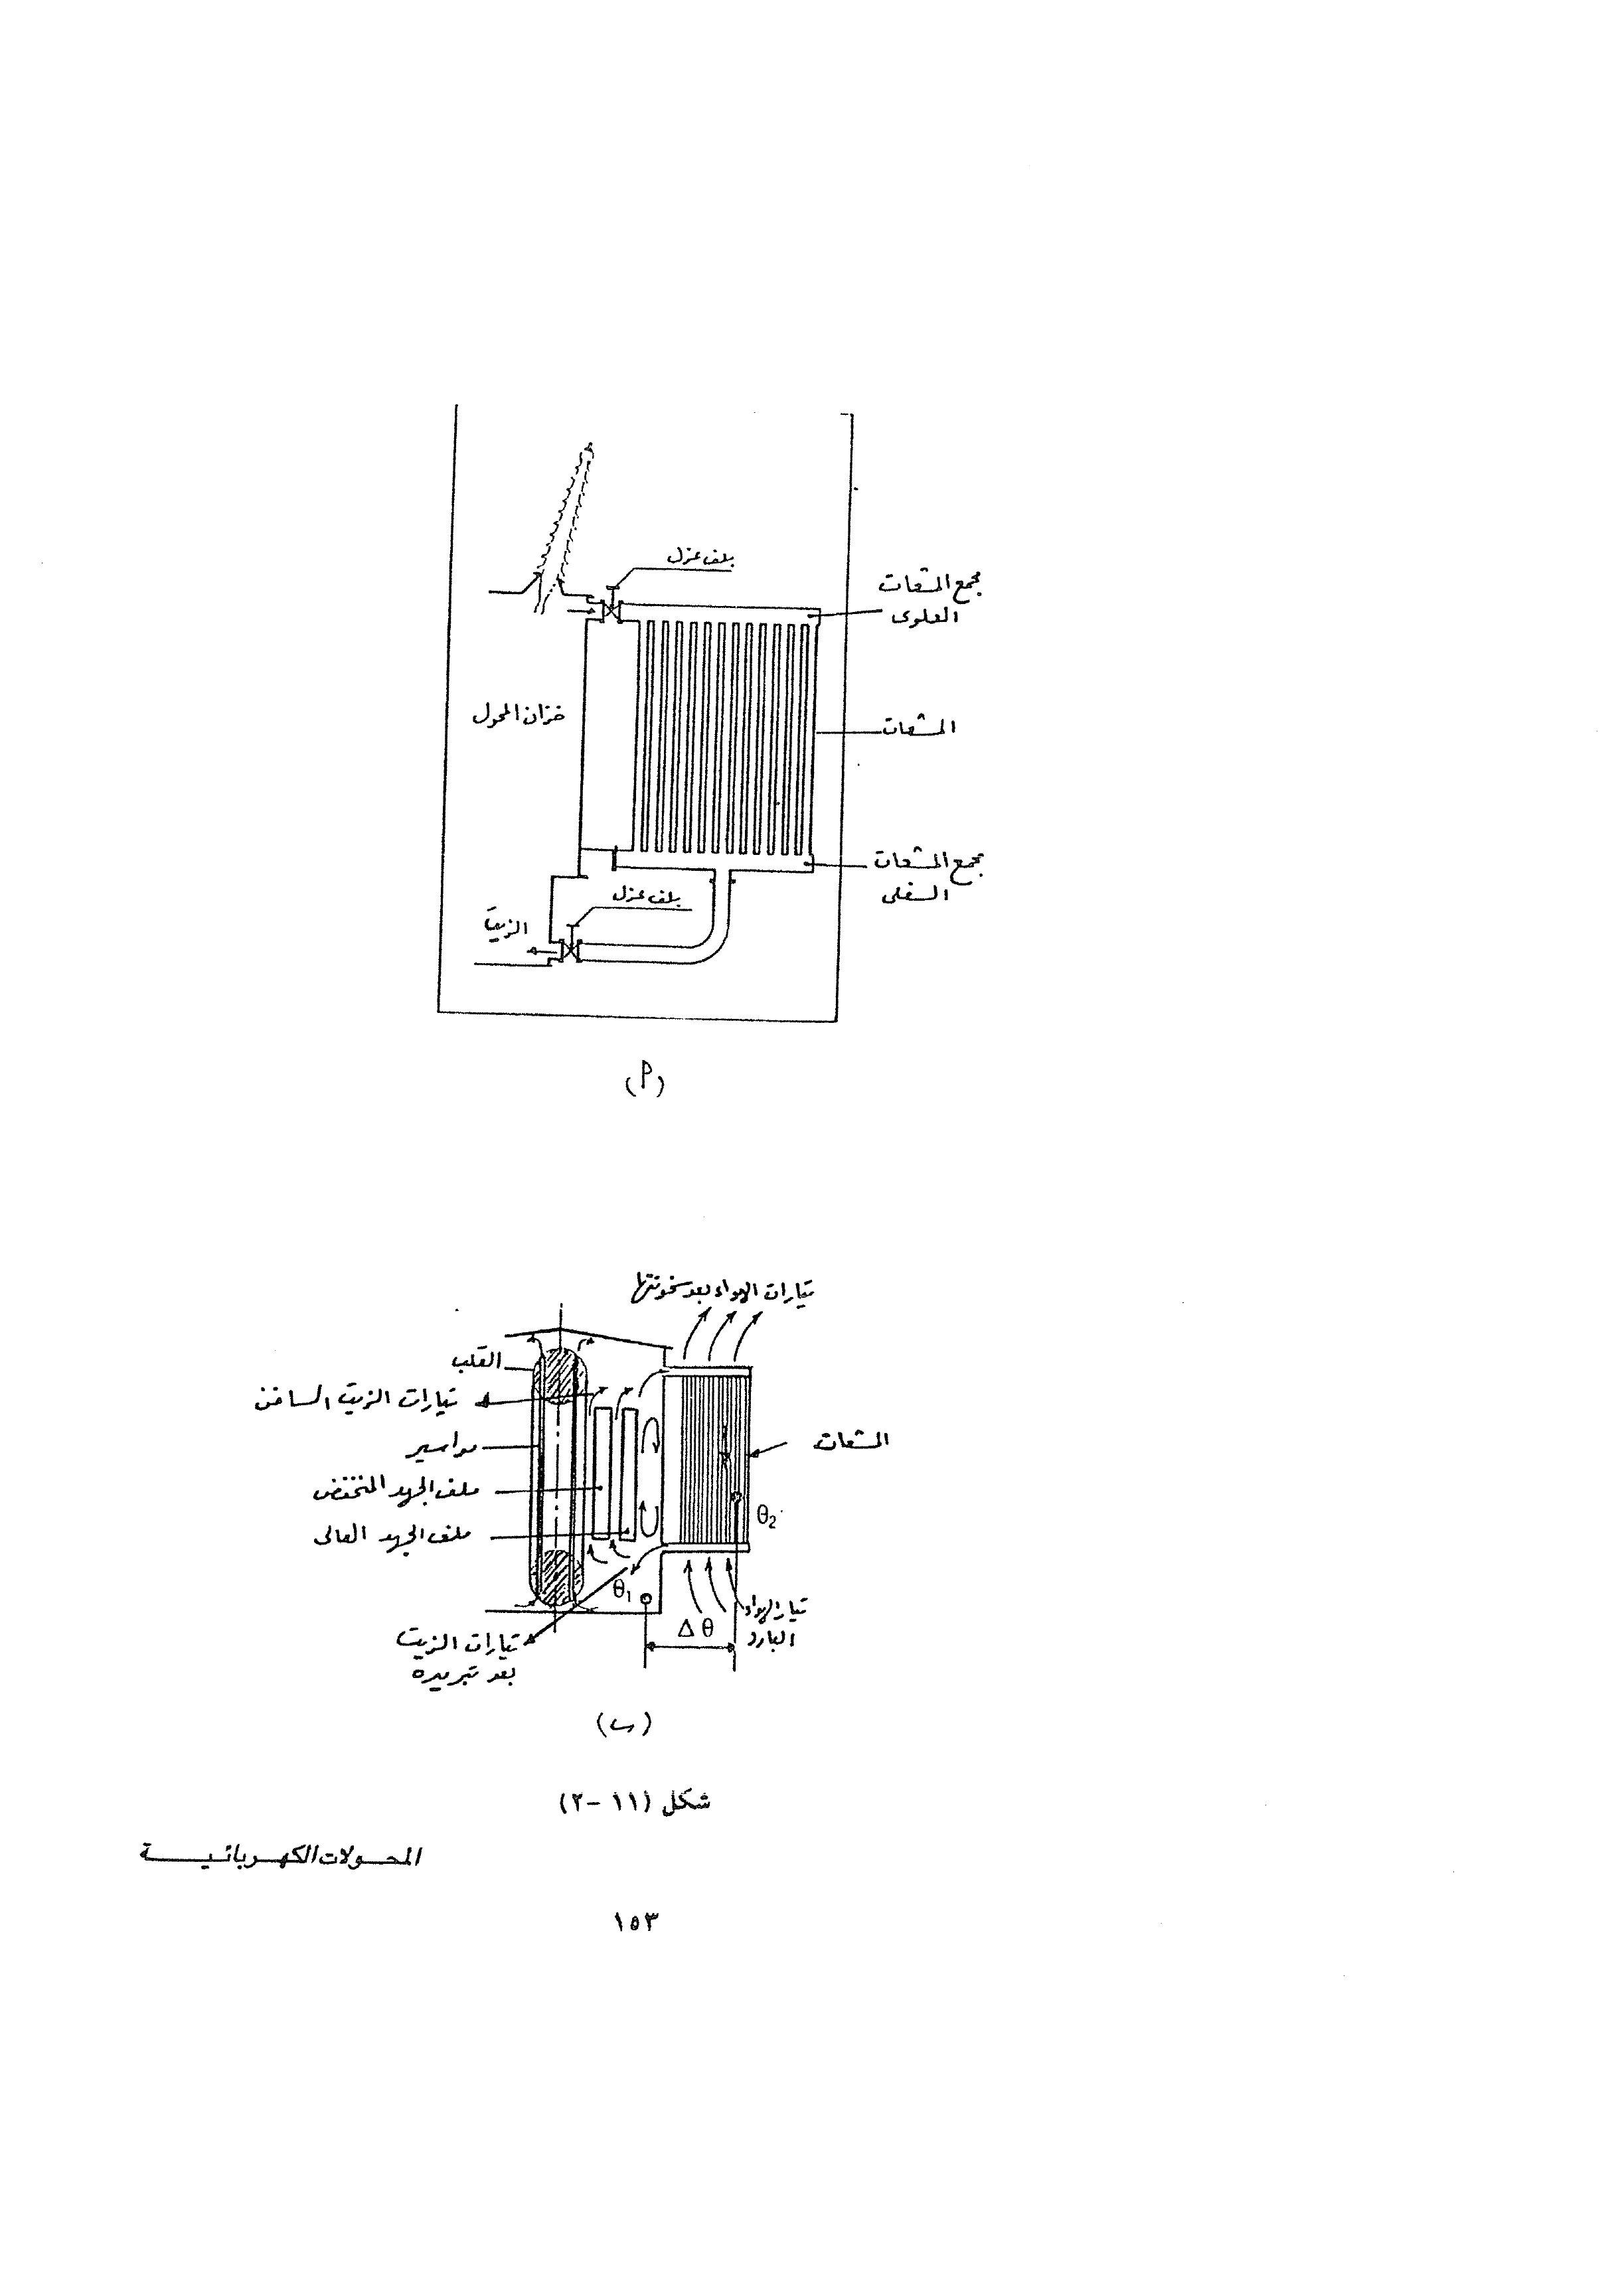 بلف عزل
مجمع المشعات
العلوى
خزان المحول
المشعات
مجمع المشعات
السفلى
بلف عزل
الزيت
(أ)
تيارات الهواء بعد سخونتها
القلب
تيارات الزيت الساخن
مواسير
المشعات
ملف الجهد المنخفض
θ2
ملف الجهد العالى
θ1
تيار الهواء
البارد
Δ θ
تيارات الزيت
بعد تبريده
(ب)
شكل (١١-٢)
المحولات الكهربائية
١٥٣